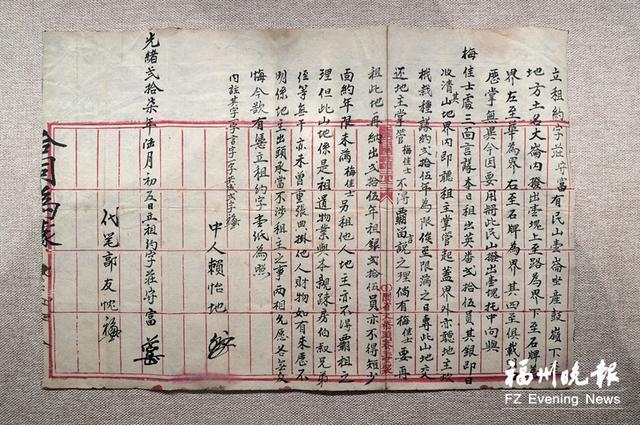 立租約字莊守富有民山壹崙坐産鼓嶺下
地方土名大崙內撥出壹塊上至路為界下至石牌
界左至 為界右至石牌為界其四至俱載
歷掌無異今因要用將此民山撥出壹塊托中向與
梅佳士處三面言議本日租出英番弍拾伍員其銀即日
收清其山地界內即聽租主掌管起蓋界外亦聽地主坎
栽種議約弍拾伍年為限俟至限滿之日專此山地交
還地主掌管梅佳士不得霸佔言說之理倘有梅佳士要再
租此地再納出弍拾伍年租銀弍拾伍員亦不得短少
面約年限未滿梅佳士另租他人地主亦不得霸租之
理但此山地係是祖遺物業與本親疎房伯叔兄弟
侄等無干亦未曾重張典掛他人財物如有來歷不
明係地主出頭承當不涉租主之事兩相允愿各無反
悔今欲有憑立租約字壹紙為照
內註其字一字言字一字
中人賴怡地
光緒弍拾柒年伍月初 日立租約字莊守富
代筆郭友忱
合同約
福州晚報
FZ Evening News